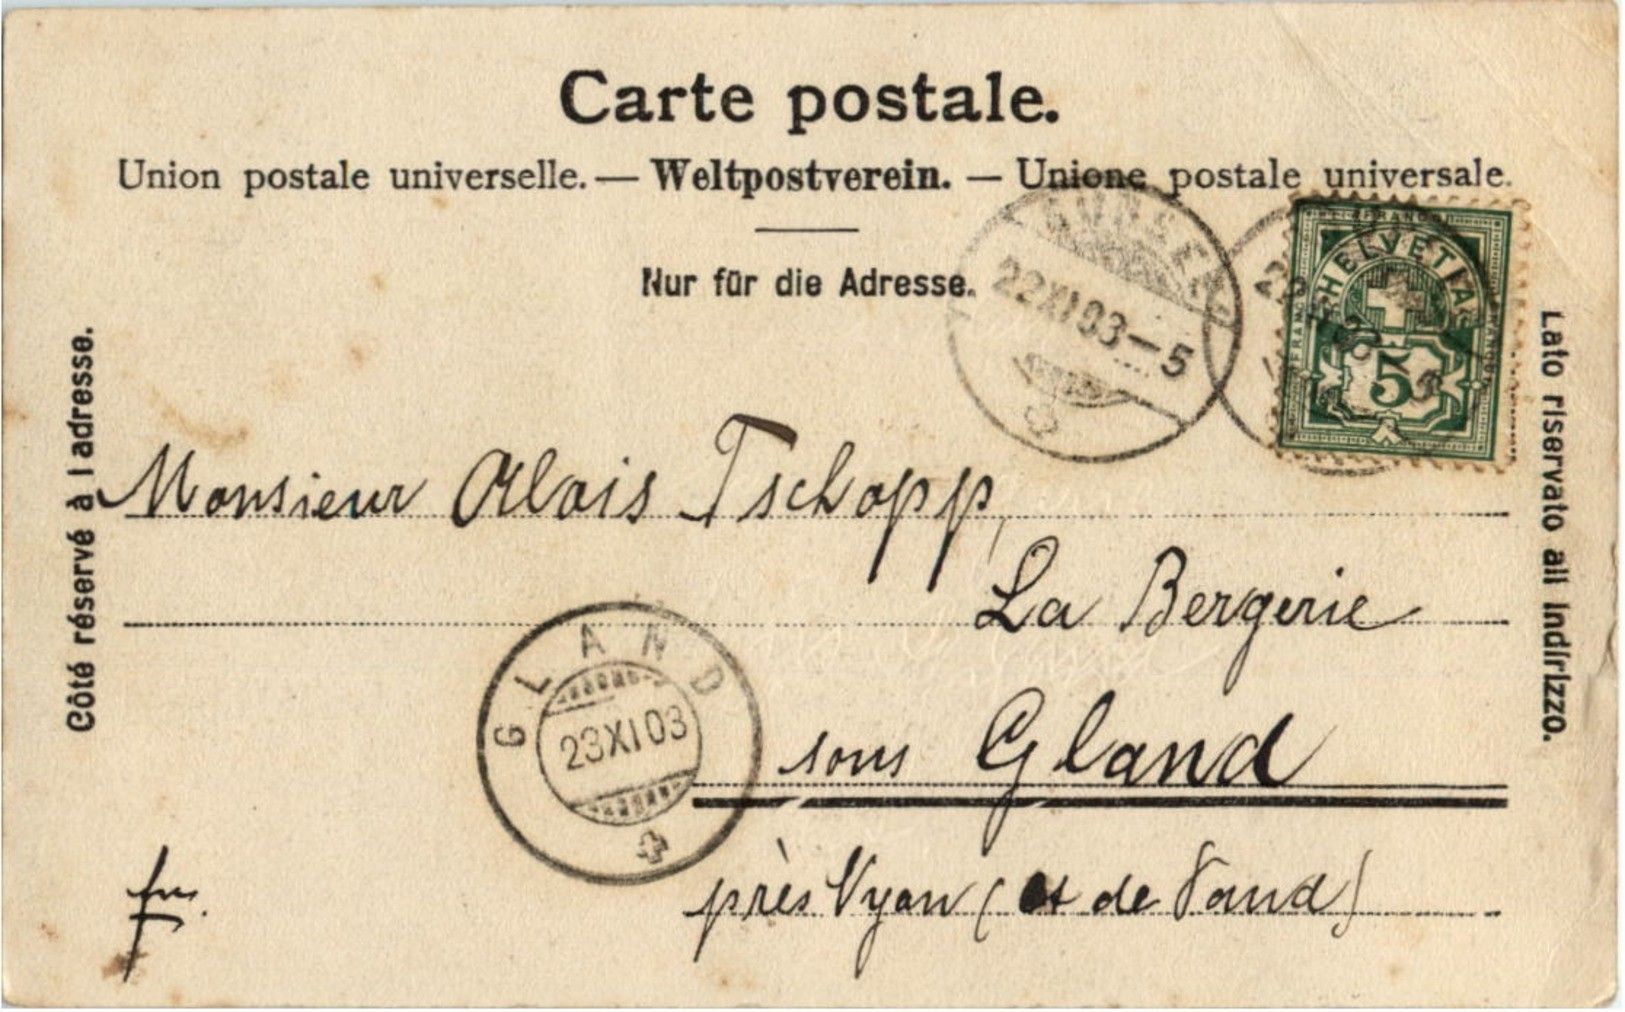 Carte postale.
Union postale universelle. — Weltpostverein. — Unione postale universale.
Nur für die Adresse.
Côté réservé à l adresse.
Lato riservato all indirizzo.
22 XI 03 — 5
FRANCO
HELVETIA
5
Monsieur Alois Tschopp,
La Bergerie
sous Gland
près Nyon (Ct de Vaud)
GLAND
23 XI 03